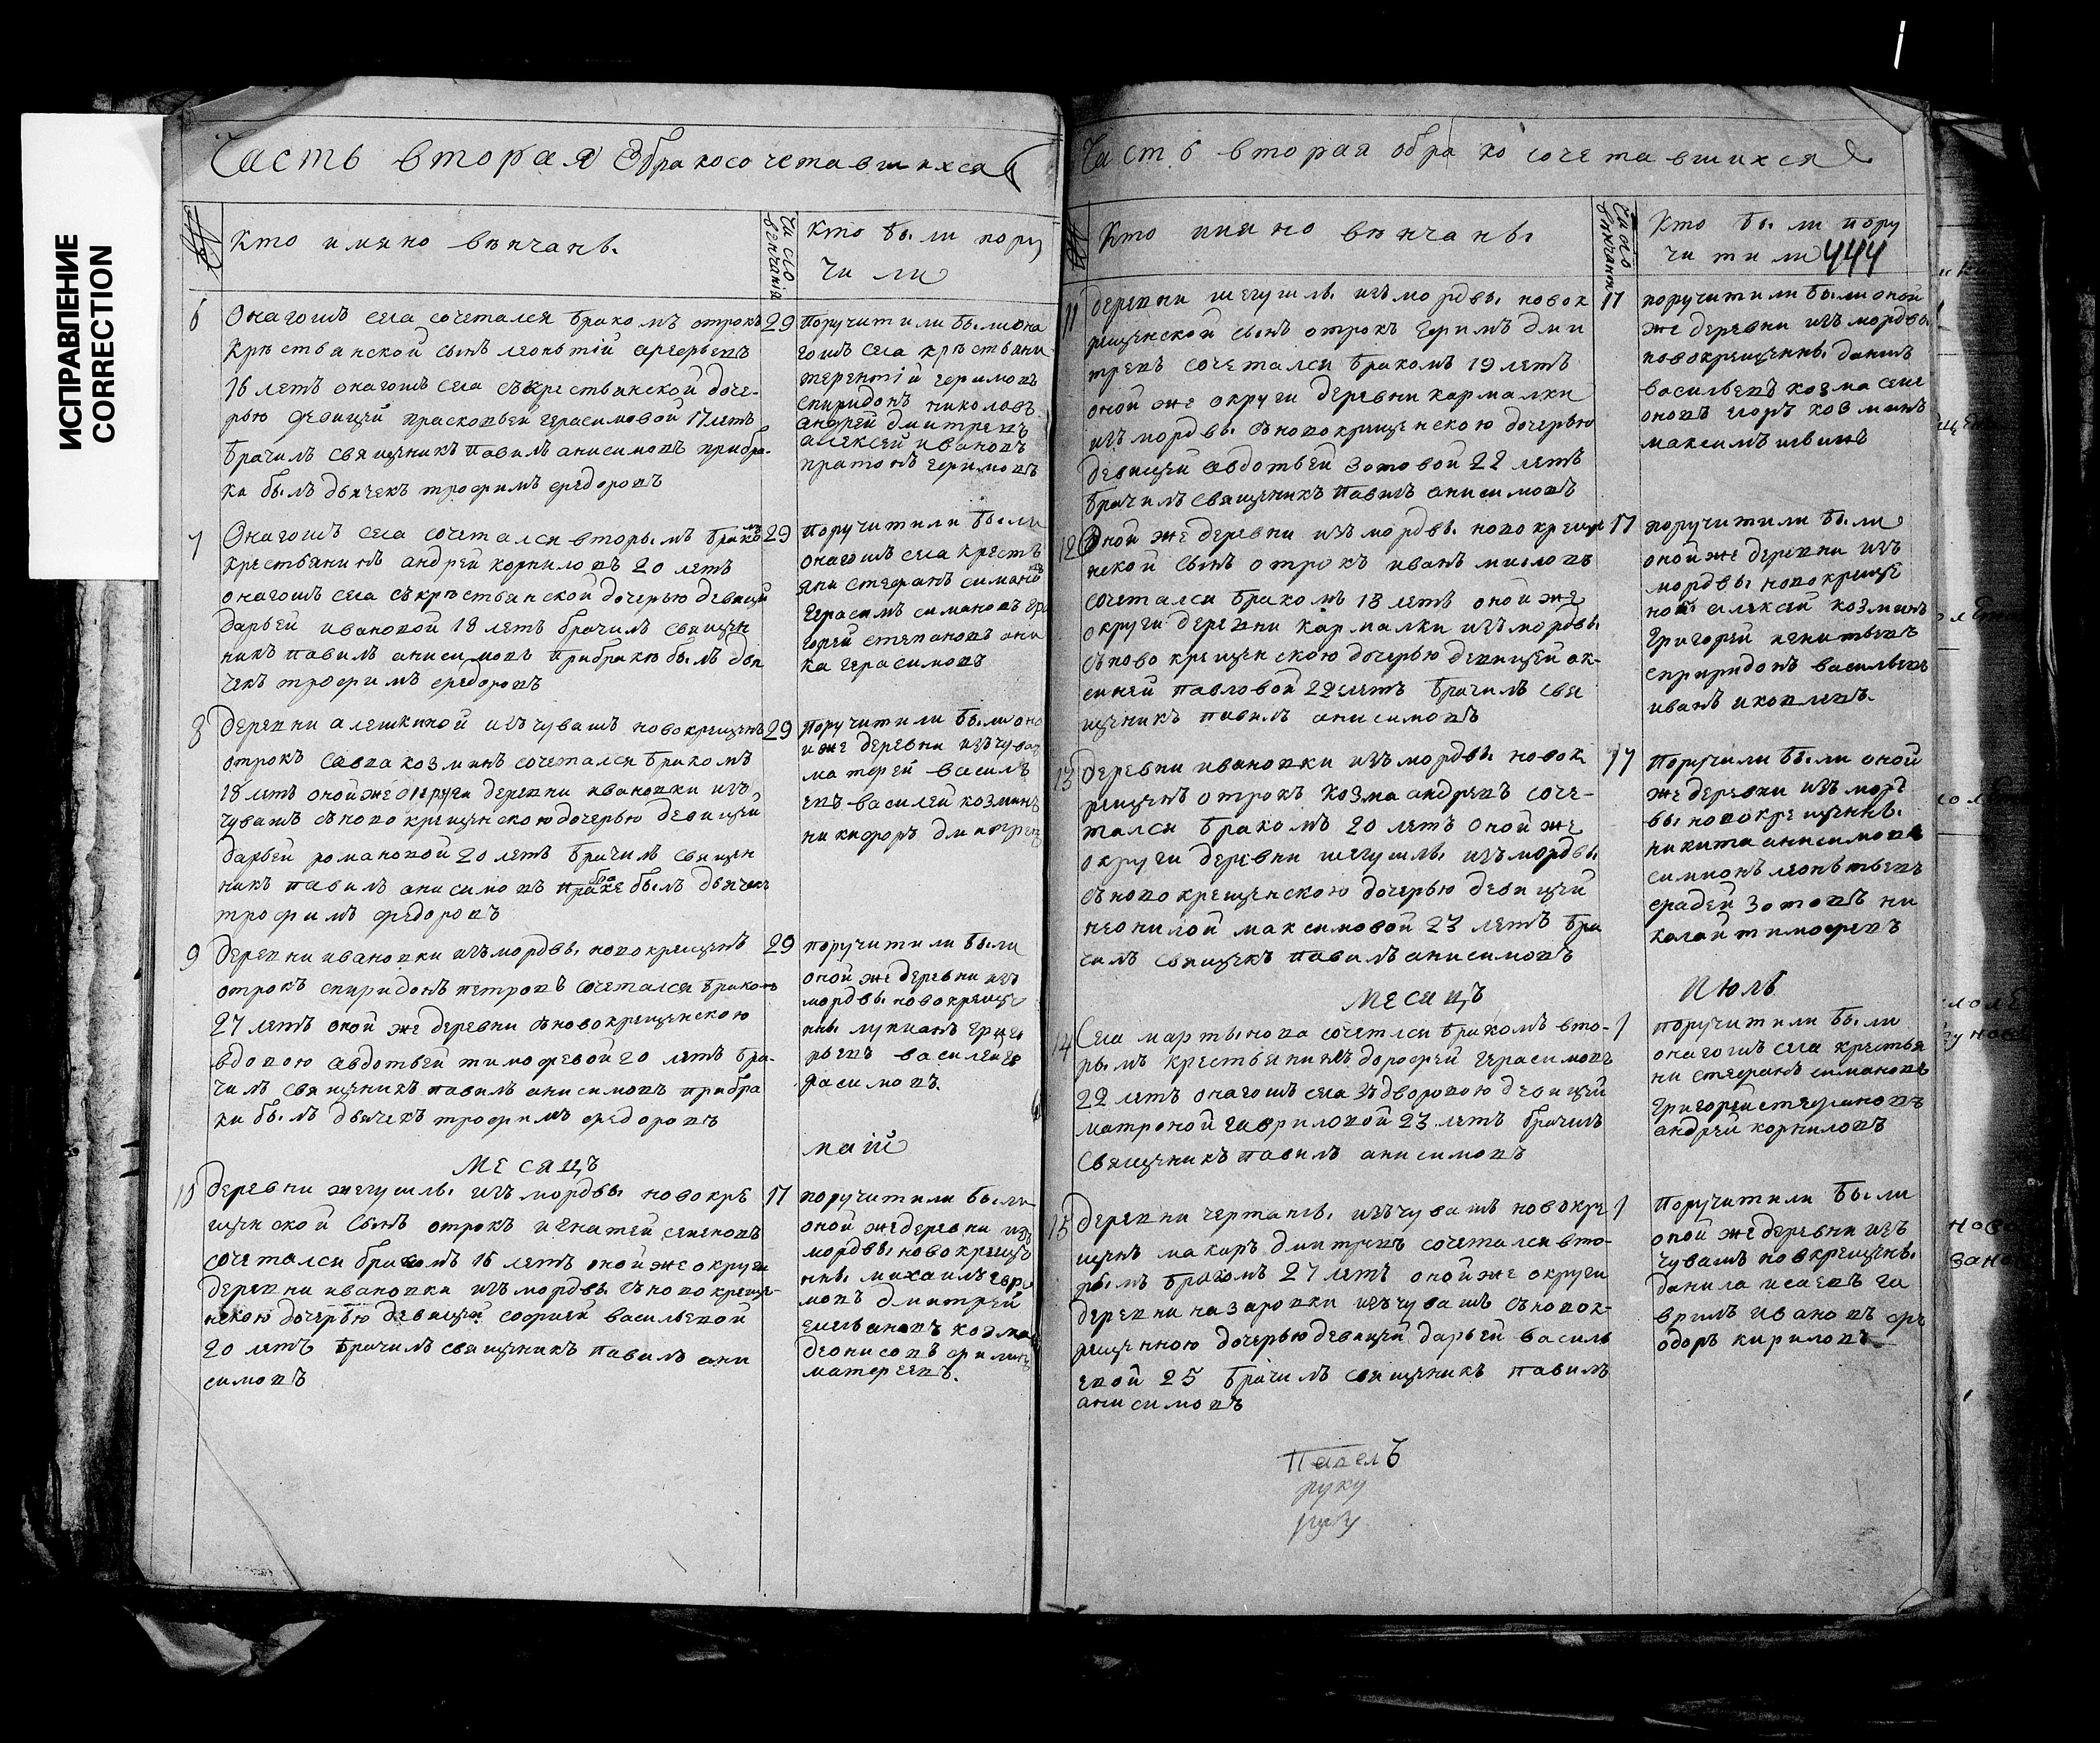 ИСПРАВЛЕНИЕ
CORRECTION
Часть вторая Обракосочетавшихся
Кто имяно венчаны.
Число венчания
Кто были пору
чили
6
Онагошъ села сочетался бракомъ отрокъ
крѣстьянской сынъ леонътiй арсерьевъ
16 летъ онагошъ села съкрестьянской доче-
рью девицей прасковьей герасимовой 17 летъ
брачилъ священикъ павилъ анисимовъ прибра-
ки былъ дьячекъ трофимъ федоровъ
29
поручитили были она
гошъ села крѣстьяни
терентiй ефимовъ
спиридонъ николаевъ
андрей дмитревъ
алексей ивановъ
платонъ ефимовъ
7
Онагошъ села сочетался вторымъ бракомъ
крестьянинъ андрей корниловъ 20 летъ
онагошъ села съкрѣстьянской дочерью девицей
дарьей ивановой 18 летъ брачилъ священ
никъ павилъ анисимовъ прибраке былъ дья
чекъ трофимъ федоровъ
29
поручитили были
онагошъ села крестья
яни стефанъ симановъ
герасимъ симановъ гри
горей степановъ они
ка герасимовъ
8
деревни алешкиной изъчувашъ новокрещенъ
отрокъ савва козминъ сочетался бракомъ
18 летъ оной же округи деревни ивановки изъ
чувашъ съновокрещенскою дочерью девицей
дарьей романовой 20 летъ брачилъ священ
никъ павилъ анисимовъ прибраке былъ дьячекъ
трофимъ федоровъ
29
поручитили были оно
иже деревни изъчуваш
матфей василь
евъ василей козминъ
никифоръ дмитревъ
9
деревни ивановки изъмордвы новокрещенъ
отрокъ спиридонъ петровъ сочетался бракомъ
27 летъ оной же деревни съновокрещенскою
вдовою авдотьей тимофевой 20 летъ бра-
чилъ священикъ павилъ анисимовъ прибра
ки былъ дьячекъ трофимъ федоровъ
29
поручитили были
оной же деревни изъ
мордвы новокреще
ны лукианъ григо
рьевъ василей ге
расимовъ.
месяцъ
май
10
деревни шегушлы изъ мордвы новокре
щенской сынъ отрокъ игнатей семеновъ
сочетался бракомъ 16 летъ оной же округи
деревни ивановки изъ мордвы съновокреще-
нскою дочерью девицей софией васильевой
20 летъ брачилъ священикъ павилъ ани
симовъ
17
поручитили были
оной жедеревни изъ
мордвы новокреще
ны михаилъ ефи
мовъ дмитрей
емельяновъ козма
деонисовъ филипъ
матфеевъ.
Часть вторая обракосочетавшихся
Кто имяно венчаны
Число венчания
Кто были пору
читили 444
11
деревни шегушлы изъ мордвы новок
рещенской сынъ отрокъ ефимъ дми
тревъ сочетался бракомъ 19 летъ
оной же округи деревни кармалки
изъ мордвы съновокрещенскою дочерью
девицей авдотьей зотовой 22 летъ
брачилъ священикъ павилъ анисимовъ
17
поручитили были оной
же деревни изъ мордвы
новокрещенны данилъ
васильевъ козма семе
оновъ егоръ козминъ
максимъ
12
Оной же деревни изъ мордвы новокреще
нской сынъ отрокъ иванъ миловъ
сочетался бракомъ 18 летъ оной же
округи деревни кармалки изъ мордвы
съново крещенскою дочерью девицей ак-
синей павловой 22 летъ брачилъ свя
щеникъ павилъ анисимовъ
17
поручитили были
оной же деревни изъ
мордвы новокреще
ной алексей козминъ
григорей игнатьевъ
спиридонъ васильевъ
иванъ яковлевъ.
13
деревни ивановки изъ мордвы новок
рещенъ отрокъ козма андревъ соче-
тался бракомъ 20 летъ оной же
округи деревни шегушлы изъ мордвы
съновокрещенскою дочерью девицей
неонилой максимовой 23 летъ бра
силъ свящекъ павилъ анисимовъ
17
Поручили были оной
же деревни изъ морд
вы новокрещенны.
никита анисимовъ
симионъ леонътьевъ
фадей зотовъ ни
колай тимофевъ
месяцъ
Июль
14
Села мартынова сочетлся бракомъ вто-
рымъ крестьянинъ дорофей герасимовъ
22 летъ онагошъ села здворовою девицей
матроной гавриловой 23 летъ брачилъ
священикъ павилъ анисимовъ
1
поручитили были
онагошъ села крестья
ни стефанъ симановъ
григорей степановъ
андрей корниловъ
15
деревни чертаны. изъчувашъ новокре
щенъ макаръ дмитревъ сочетался вто-
рымъ бракомъ 27 летъ оной же округи
деревни назаровки изъчувашъ съновок-
рещенною дочерью девицей дарьей василь
евой 25 брачилъ священикъ павилъ
анисимовъ
1
поручитили были
оной же деревни изъ
чувашъ новкрещены.
данила исаевъ га
врилъ ивановъ фе
одоръ кириловъ
Павелъ
руку